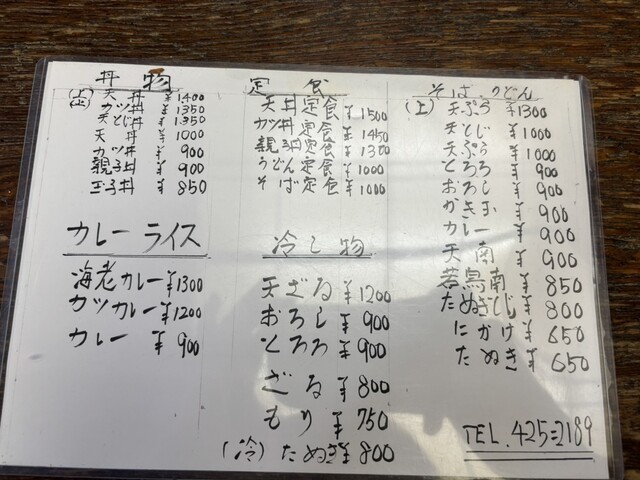 丼物
(上)天丼 ¥1400
(上)カツ丼 ¥1350
天とじ丼 ¥1350
天丼 ¥1000
カツ丼 ¥900
親子丼 ¥900
玉子丼 ¥850
カレーライス
海老カレー ¥1300
カツカレー ¥1200
カレー ¥900
定食
天丼定食 ¥1500
カツ丼定食 ¥1450
親子丼定食
うどん定食 ¥1000
そば定食 ¥1000
冷し物
天ざる ¥1200
おろし ¥900
とろろ ¥900
ざる ¥800
もり ¥750
(冷)たぬき ¥800
そば、うどん
(上)天ぷら ¥1300
天とじ ¥1000
天ぷら ¥1000
とろろ ¥900
おろし ¥900
かきたま ¥900
カレー ¥900
天南 ¥900
若鳥南 ¥850
たぬきとじ ¥800
にかけ ¥650
たぬき ¥650
TEL.425=2189